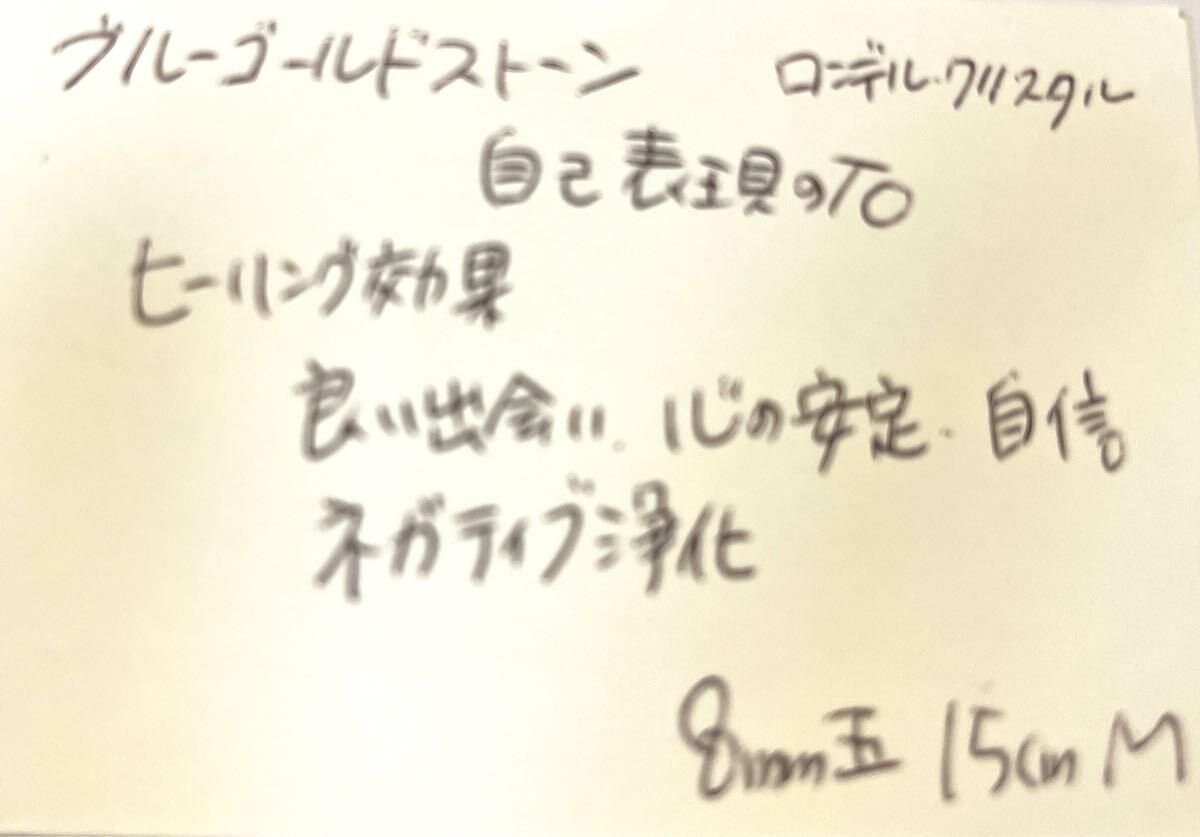 ブルーゴールドストーン ロンデル・クリスタル
自己表現の
ヒーリング効果
良い出会い、心の安定、自信。
ネガティブ浄化
8mm玉 15cm M